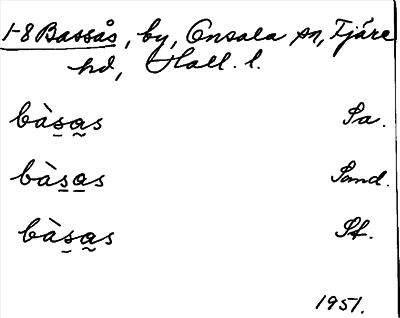 1-8 Bassås, by, Onsala sn, Fjäre
hd, Hall. l.
bàs̠a̰s Sa.
bàs̠a̠s Sand.
bàs̠a̰s Sf.
1951.